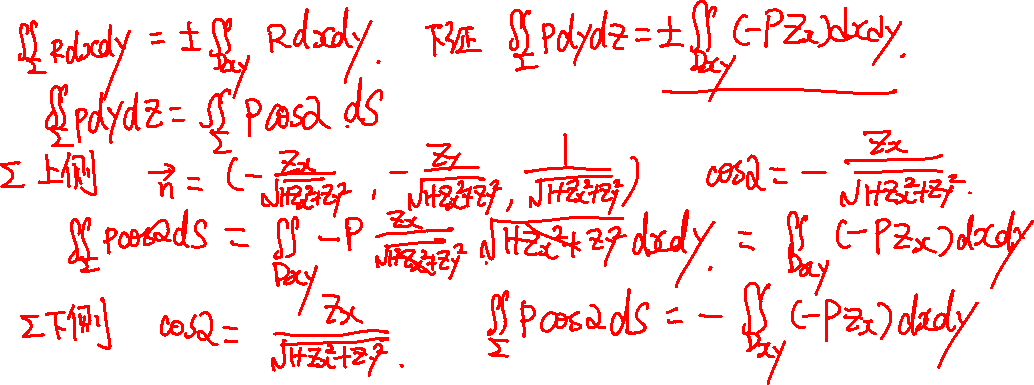 ∬_Σ Rdxdy = ±∬_{Dxy} Rdxdy. 下证 ∬_Σ Pdydz = ±∬_{Dxy} (-PZx)dxdy.
∬_Σ Pdydz = ∬_Σ P cosα dS
Σ上侧 n⃗ = (-Zx/√(1+Zx²+Zy²), -Zy/√(1+Zx²+Zy²), 1/√(1+Zx²+Zy²)) cosα = -Zx/√(1+Zx²+Zy²).
∬_Σ Pcosα dS = ∬_{Dxy} -P Zx/√(1+Zx²+Zy²) √(1+Zx²+Zy²) dxdy. = ∬_{Dxy} (-PZx)dxdy
Σ下侧 cosα = Zx/√(1+Zx²+Zy²). ∬_Σ Pcosα dS = -∬_{Dxy} (-PZx)dxdy